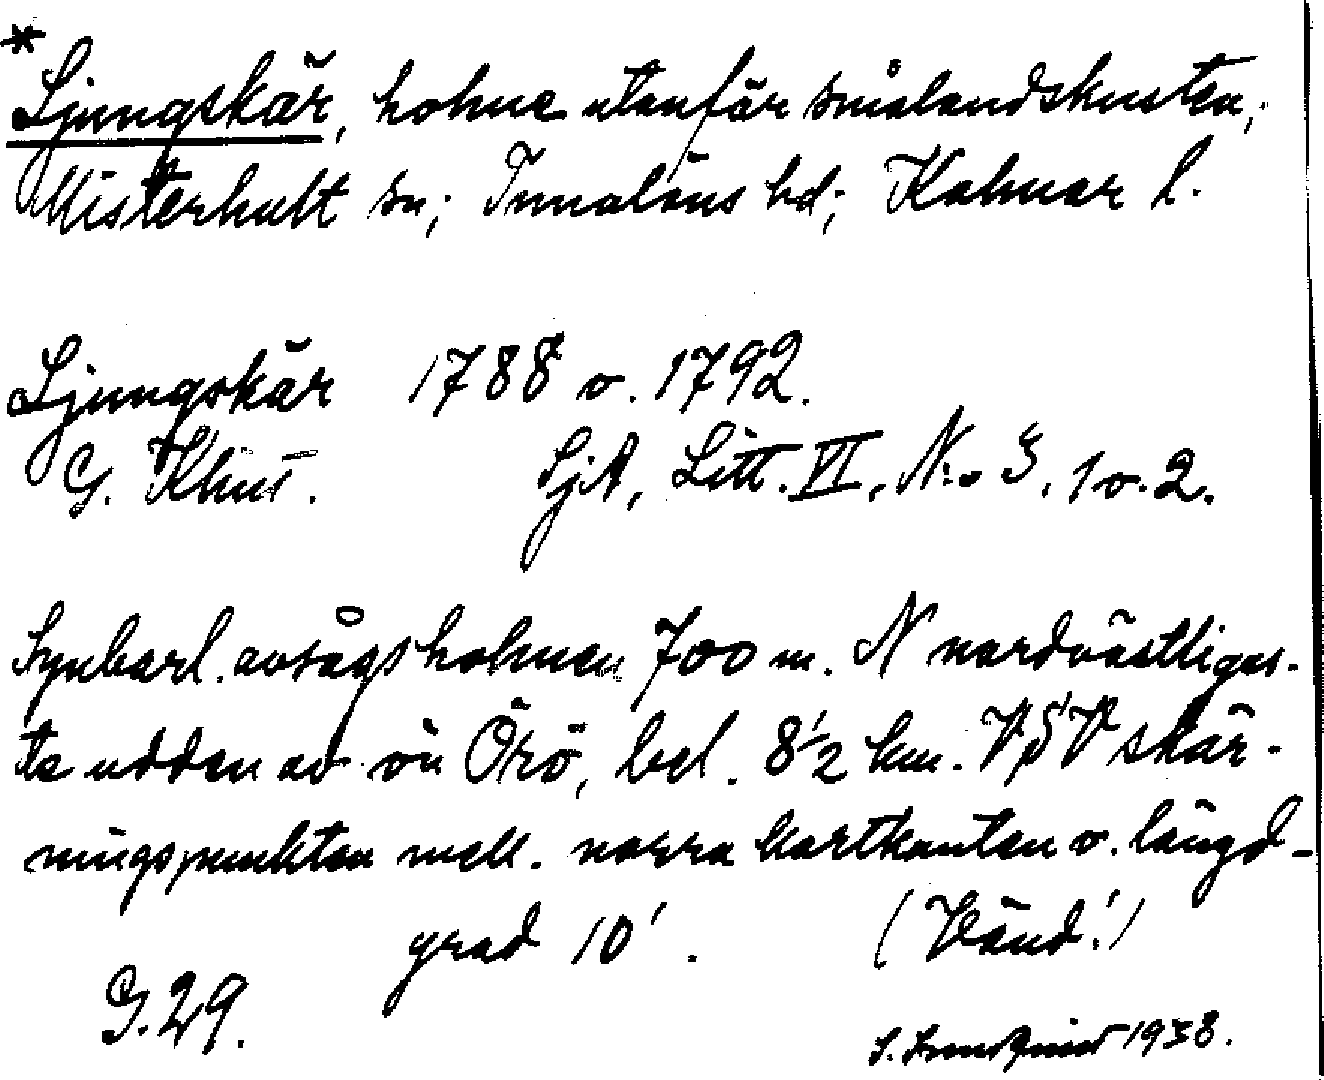 *
Ljungskär, holme utanför smålandskusten;
Misterhult sn; Tunaläns hd; Kalmar l.
Ljungskär 1788 o. 1792.
G. Klint. SjA, Litt. VI, N:o 3, 1 o. 2.
Synbarl. avsågs holmen 700 m. N nordvästligas-
te udden av ön Örö, bel. 8 1/2 km. VSV skär-
ningspunkten mell. norra kartkanten o. längd-
grad 10'. (Vänd!)
G. 29.
1938.